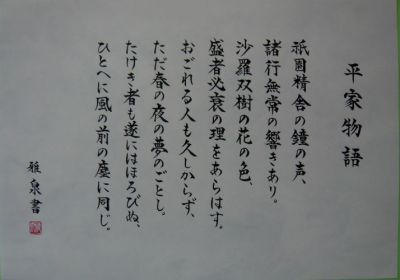 平家物語
祇園精舎の鐘の声、
諸行無常の響きあり。
沙羅双樹の花の色、
盛者必衰の理をあらはす。
おごれる人も久しからず、
ただ春の夜の夢のごとし。
たけき者も遂にはほろびぬ、
ひとへに風の前の塵に同じ。
雅泉書